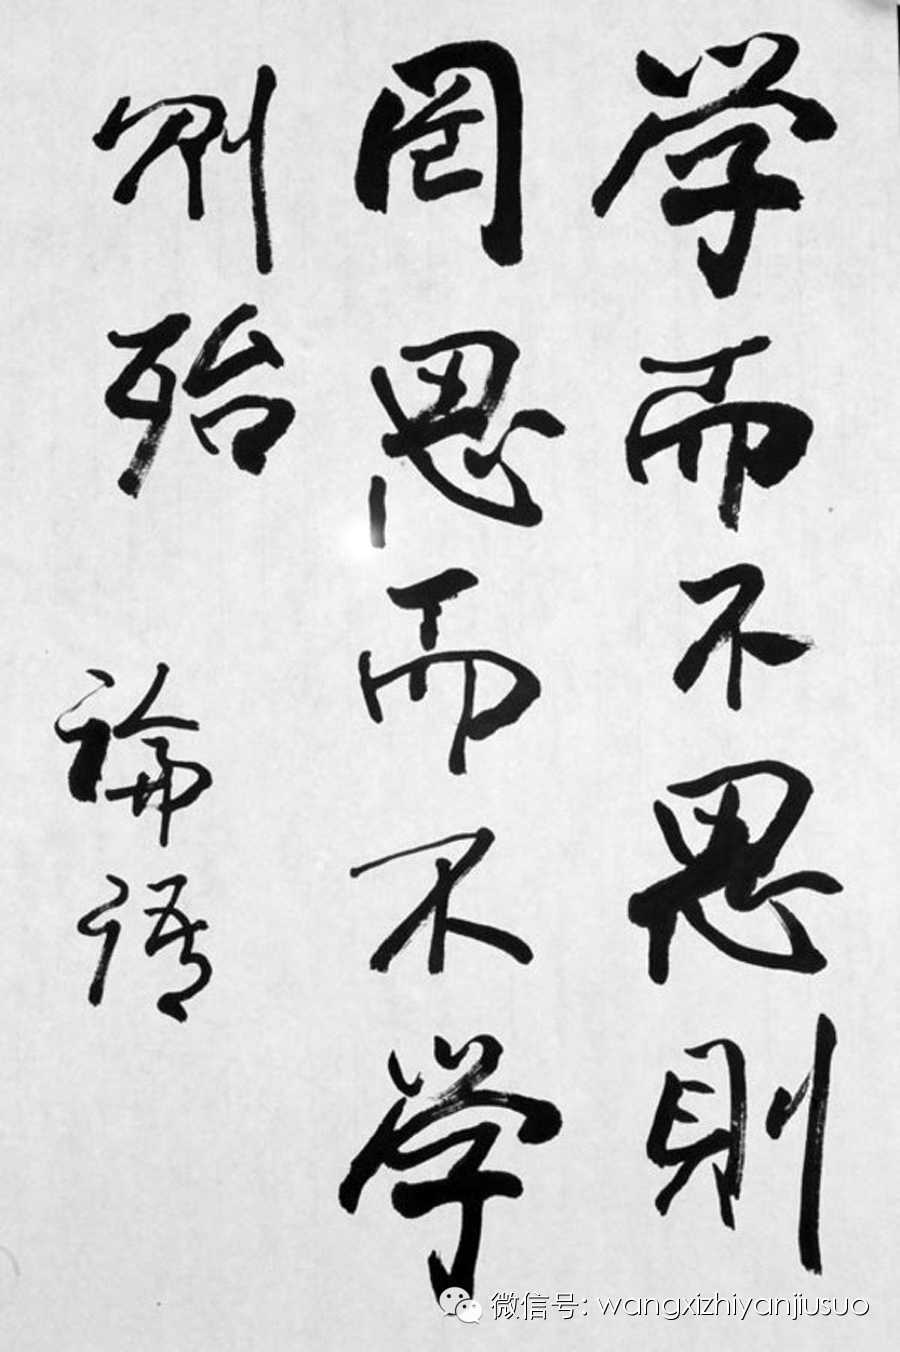 学而不思則
罔思而不学
則殆
論語
微信号: wangxizhiyanjiusuo